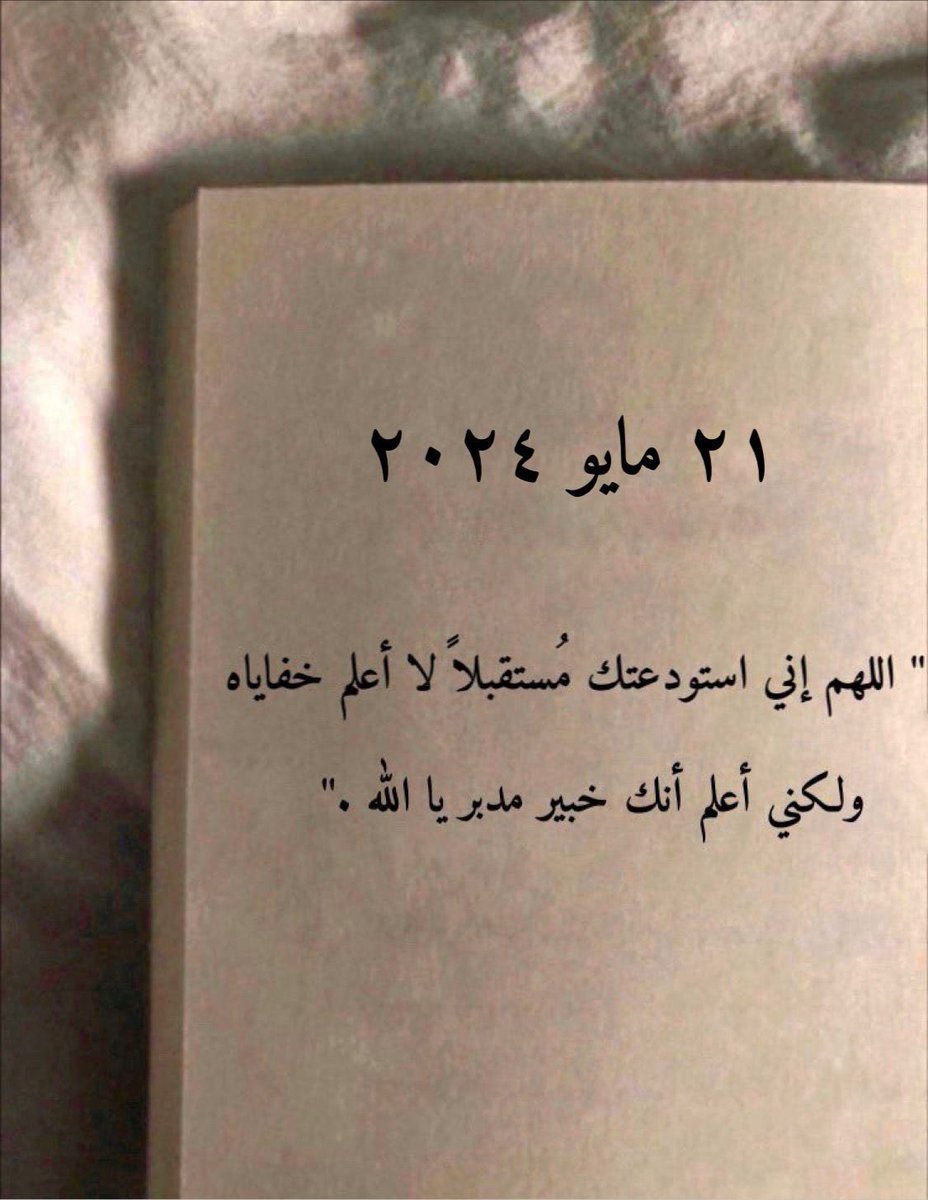 ٢١ مايو ٢٠٢٤
" اللهم إني استودعتك مُستقبلاً لا أعلم خفاياه
ولكني أعلم أنك خبير مدبر يا الله ."